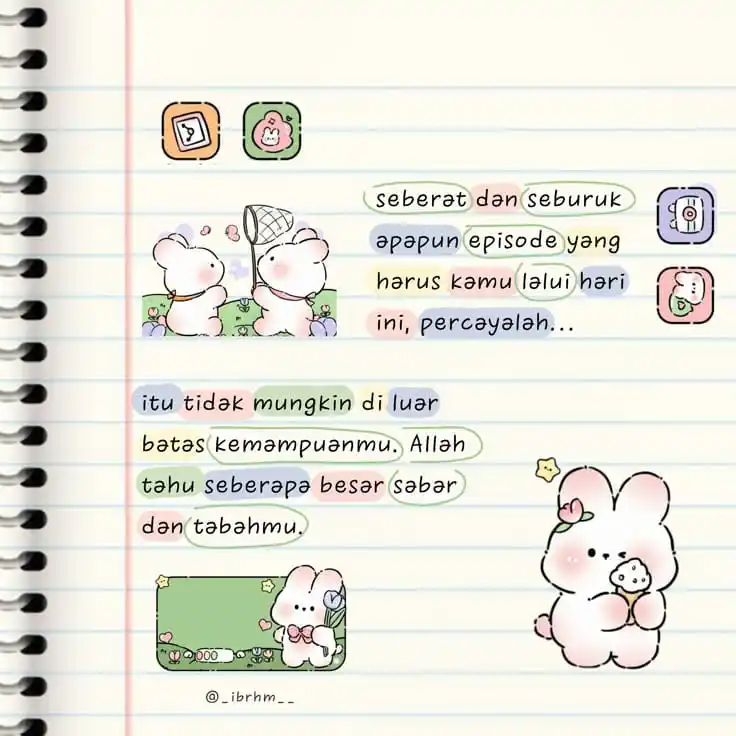 seberat dan seburuk
apapun episode yang
harus kamu lalui hari
ini, percayalah...
itu tidak mungkin di luar
batas kemampuanmu. Allah
tahu seberapa besar sabar
dan tabahmu.
@_ibrhm__